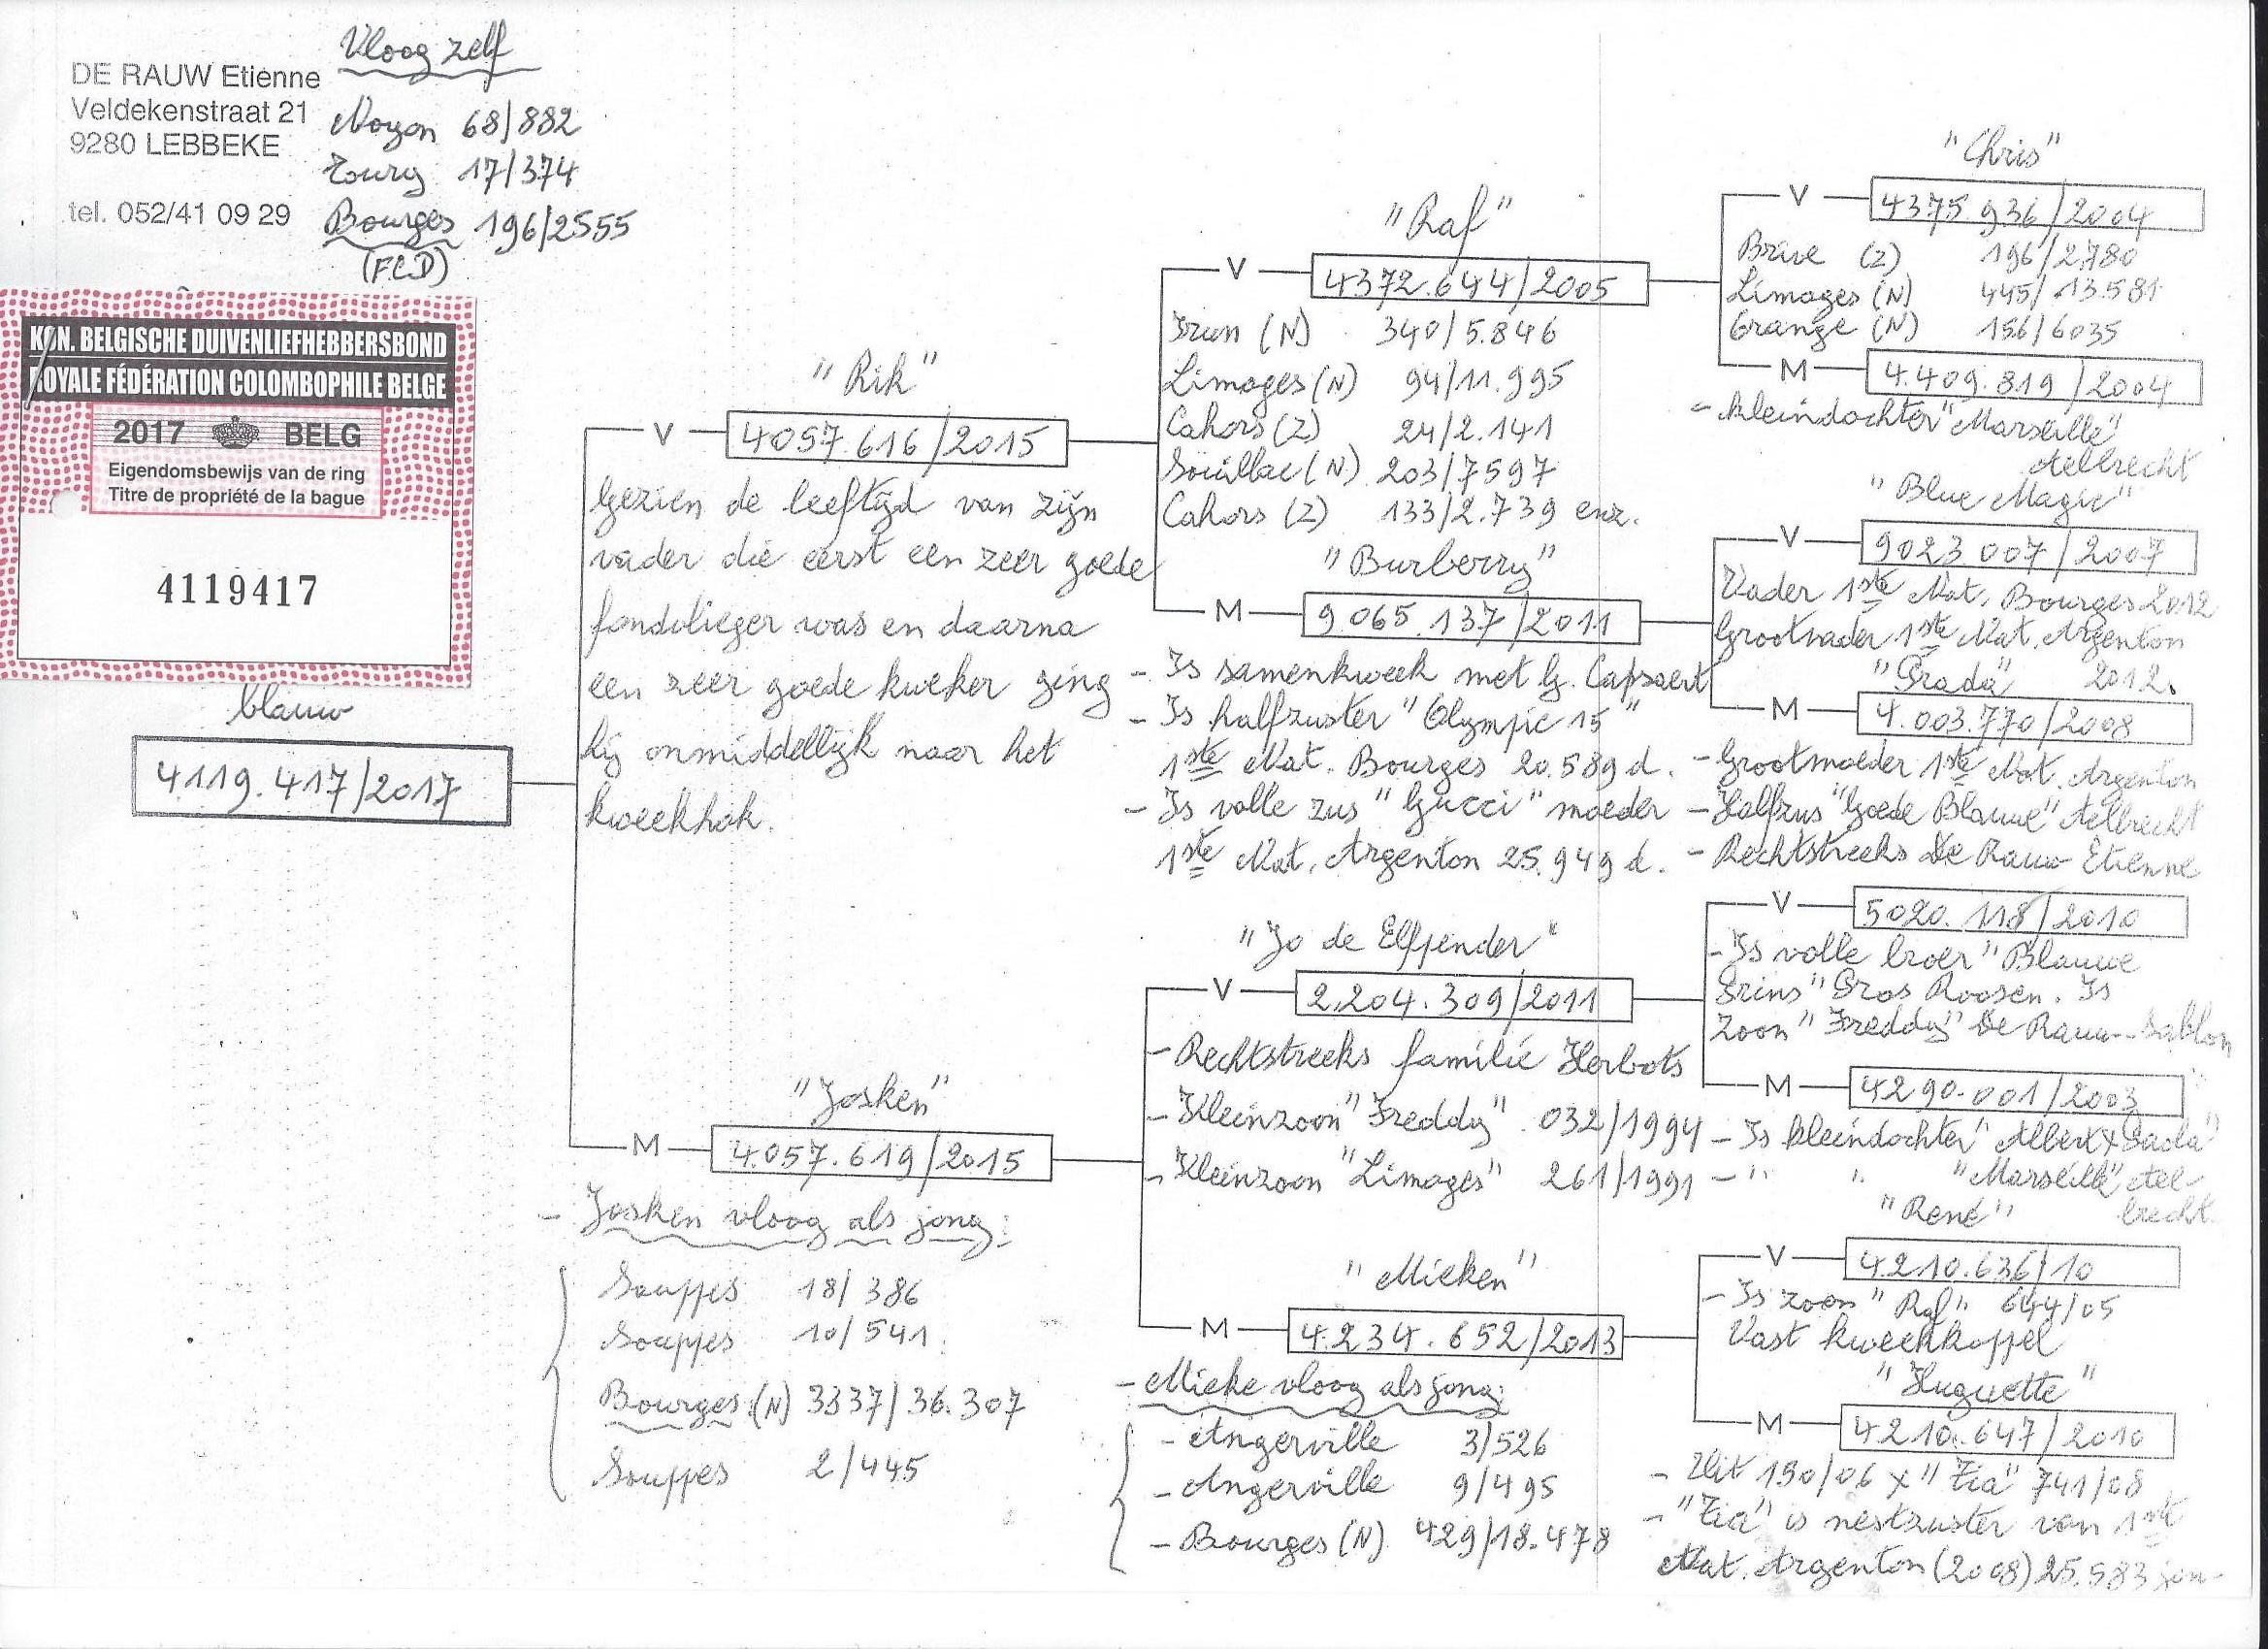 DE RAUW Etienne
Veldekenstraat 21
9280 LEBBEKE
tel. 052/41 09 29
Vloog zelf
Noyon 68/882
Toury 17/374
Bourges 196/2555
(FCD)
KON. BELGISCHE DUIVENLIEFHEBBERSBOND
ROYALE FÉDÉRATION COLOMBOPHILE BELGE
2017 BELG
Eigendomsbewijs van de ring
Titre de propriété de la bague
4119417
blauw
4119.417/2017
"Rik"
V 4057.616/2015
Gezien de leeftijd van zijn
vader die eerst een zeer goede
fondvlieger was en daarna
een zeer goede kweker ging
hij onmiddellijk naar het
kweekhok.
"Josken"
M 4.057.619/2015
- Josken vloog als jong:
Souppes 18/386
Souppes 10/541
Bourges (N) 3337/36.307
Souppes 2/445
"Raf"
V 4372.644/2005
Irun (N) 340/5.846
Limoges (N) 94/11.995
Cahors (Z) 24/2.141
Souillac (N) 203/7597
Cahors (Z) 133/2.739 enz.
"Burberry"
M 9.065.137/2011
- Is samenkweek met G. Capsaert
- Is halfzuster "Olympic 15"
1ste Nat. Bourges 20.589 d.
- Is volle zus "Gucci" moeder
1ste Nat. Argenton 25.949 d.
"Jo de Elffender"
V 2.204.309/2011
- Rechtstreeks familie Herbots
- Kleinzoon "Freddy" 032/1994
- Kleinzoon "Limoges" 261/1991
"Mieken"
M 4.234.652/2013
- Mieke vloog als jong:
- Angerville 3/526
- Angerville 9/495
- Bourges (N) 429/18.478
"Chris"
V 4375936/2004
Brive (Z) 196/2780
Limoges (N) 445/13.581
Orange (N) 156/6035
M 4.409.819/2004
- kleindochter "Marseille"
Aelbrecht
"Blue Magic"
V 9023007/2007
Vader 1ste Nat. Bourges 2012
Grootvader 1ste Nat. Argenton
2012.
"Prada"
M 4.003.770/2008
- Grootmoeder 1ste Nat. Argenton
- Halfzus "Goede Blauwe" Aelbrecht
- Rechtstreeks De Rauw Etienne
V 5020.118/2010
- Is volle broer "Blauwe
Prins" Gros Roosen. Is
zoon "Freddy" De Rauw-Sablon
M 4290.001/2003
- Is kleindochter "Albert x Paola"
- " " "Marseille" Ael
brecht.
"René"
V 4.210.636/10
- Is zoon "Raf" 644/05
Vast kweekkoppel
"Huguette"
M 4210.647/2010
- Uit 190/06 x "Tia" 741/08
- "Tia" is nestzuster van 1ste
Nat. Argenton (2008) 25.583